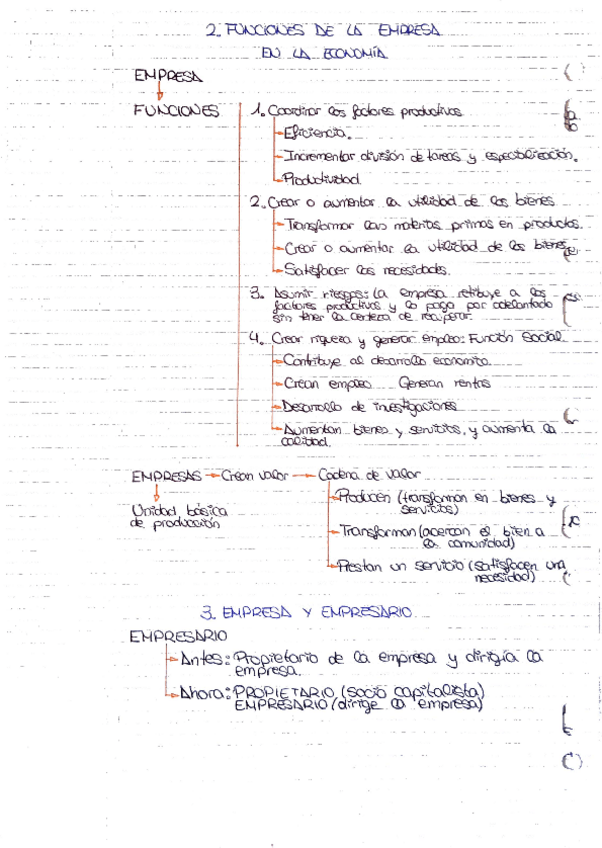 2. FUNCIONES DE LA EMPRESA
EN LA ECONOMÍA
EMPRESA
FUNCIONES
1. Coordinar los factores productivos
Eficiencia.
Incrementar división de tareas y especialización.
Productividad.
2. Crear o aumentar la utilidad de los bienes
Transformar las materias primas en productos.
Crear o aumentar la utilidad de los bienes.
Satisfacer las necesidades.
3. Asumir riesgos: la empresa retribuye a los
factores productivos y lo paga por adelantado
sin tener la certeza de recuperar.
4. Crear riqueza y generar empleo: Función social.
Contribuye al desarrollo economico.
Crean empleo Generan rentas
Desarrollo de investigaciones
Aumentan bienes y servicios, y aumenta la
calidad.
EMPRESAS → Crean valor → Cadena de valor
Unidad básica
de producción
Producen (transforman en bienes y
servicios)
Transforman (acercan el bien a
la comunidad)
Prestan un servicio (satisfacen una
necesidad)
3. EMPRESA Y EMPRESARIO
EMPRESARIO
Antes: Propietario de la empresa y dirigía la
empresa.
Ahora: PROPIETARIO (socio capitalista)
EMPRESARIO (dirige la empresa)